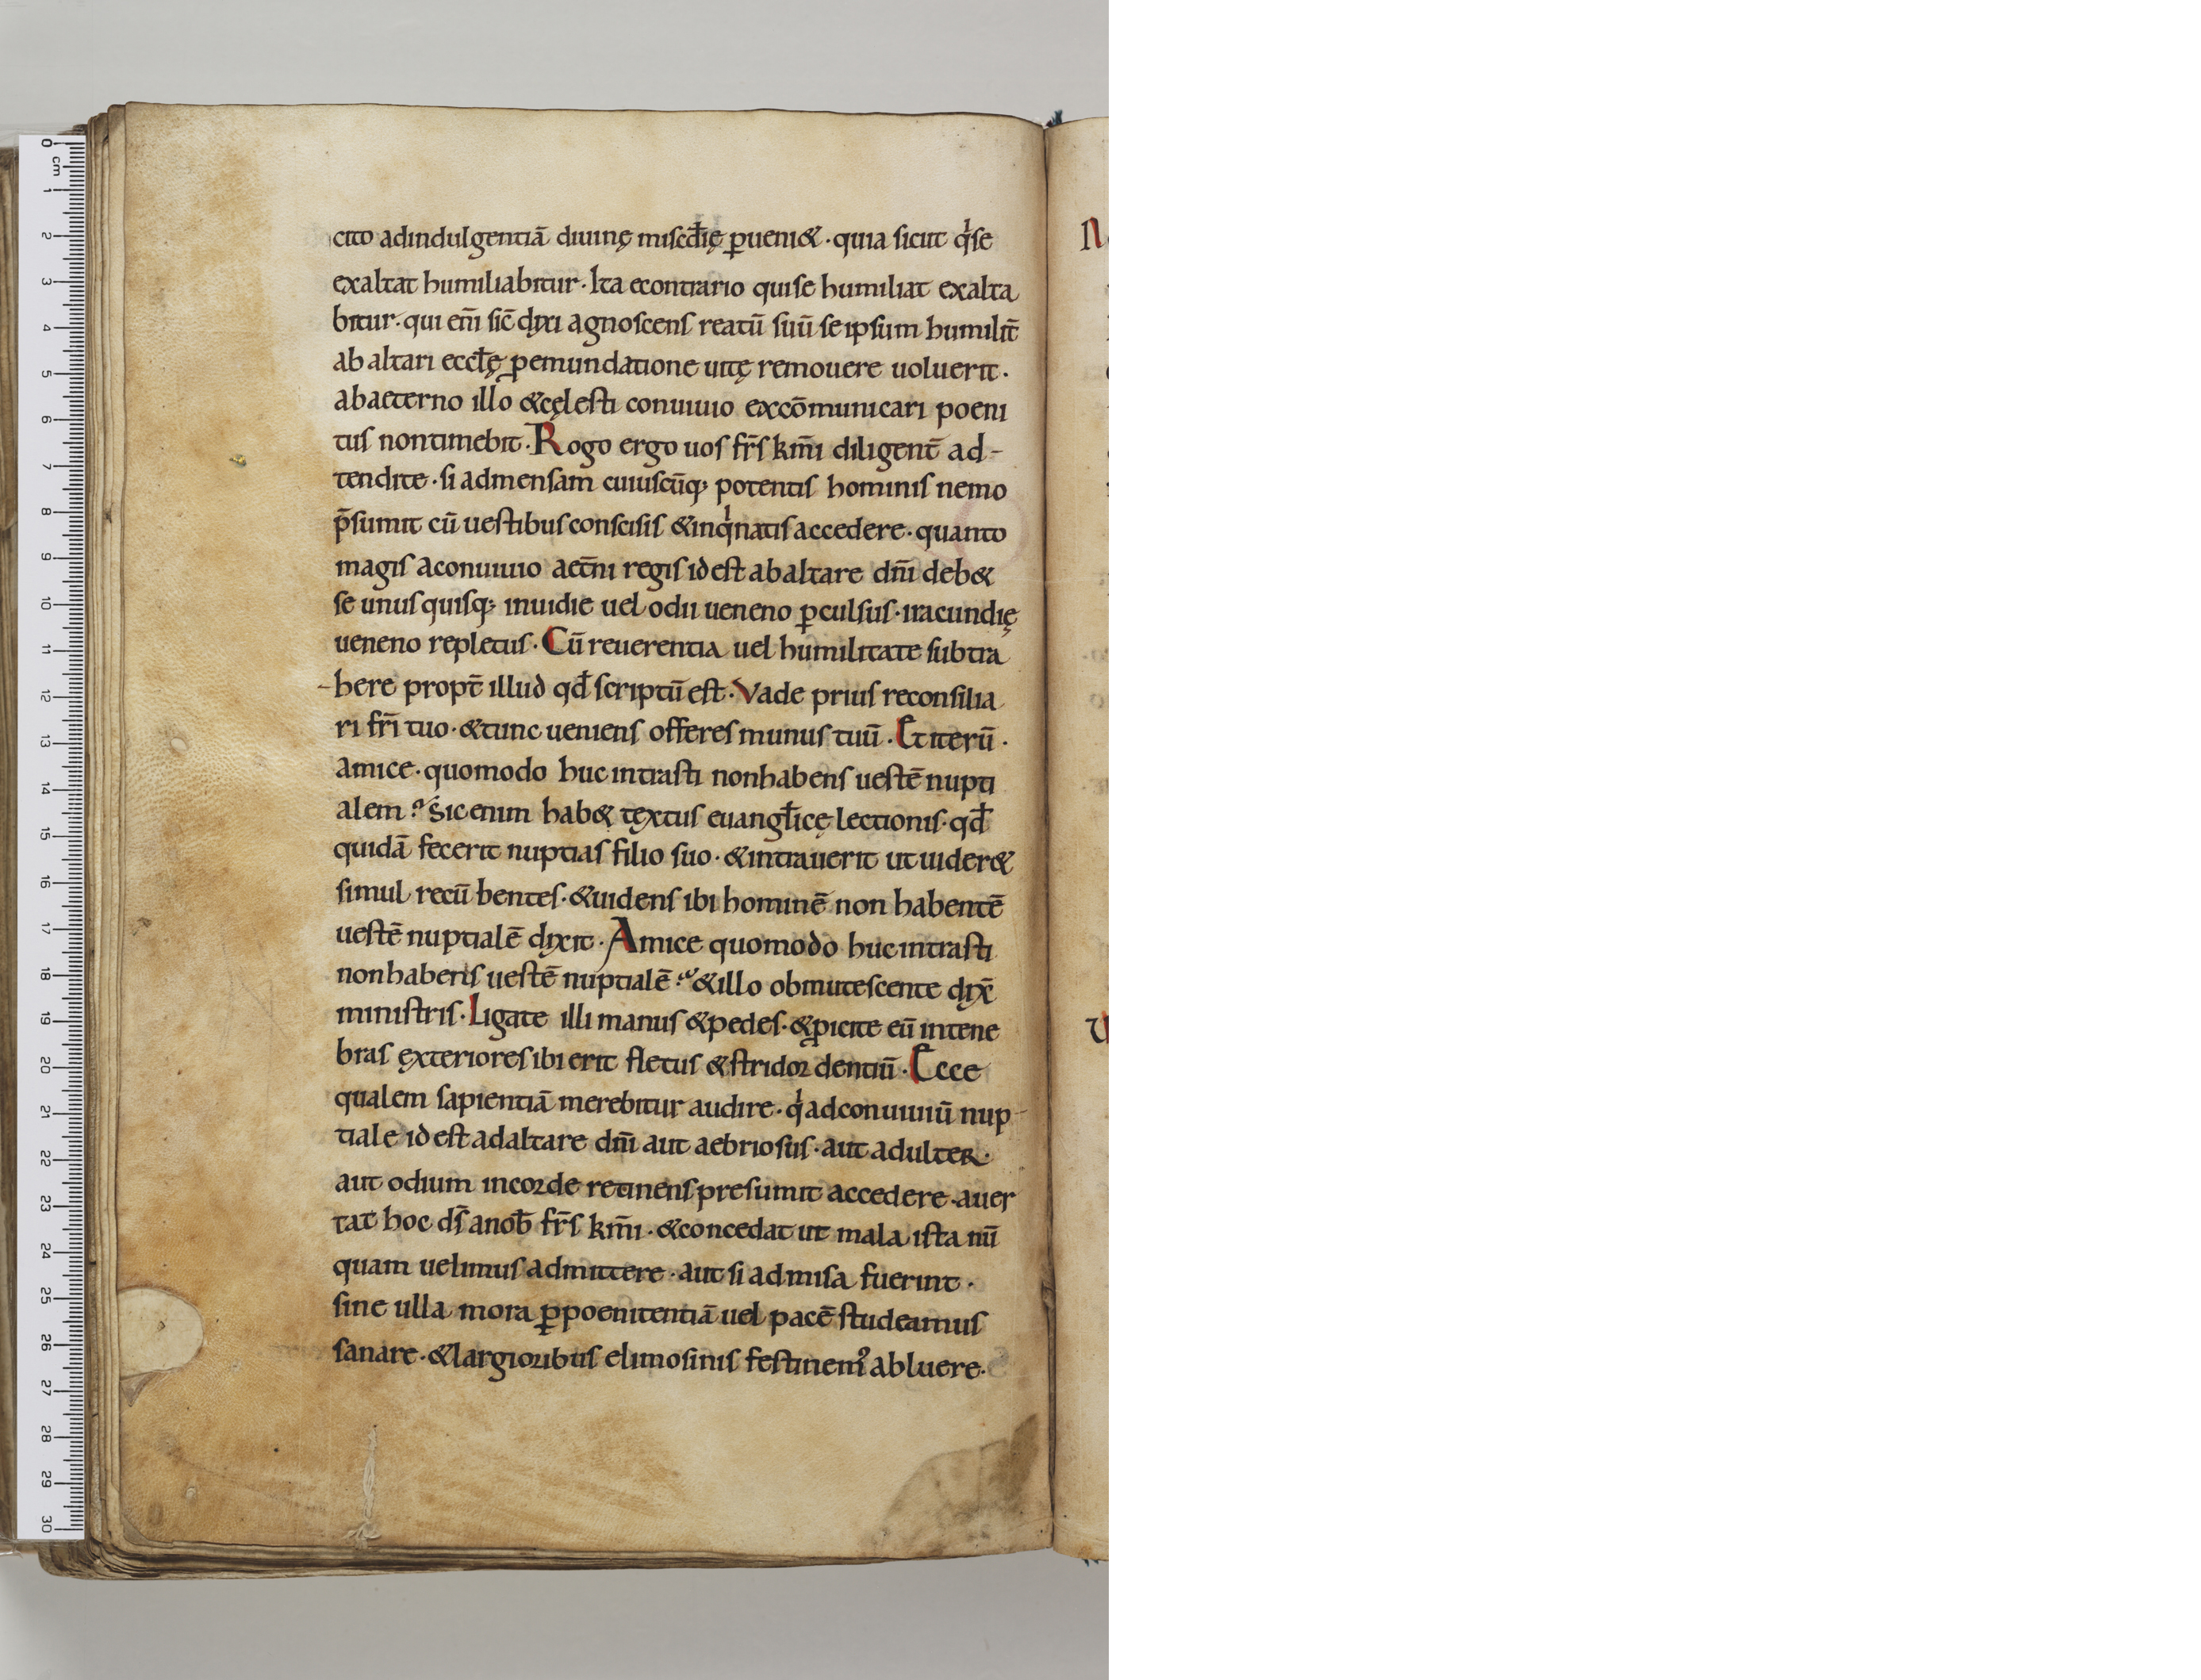 cito adindulgentiā diuinę miscđię ꝑueni&·quia sicut qͥse
exaltat humiliabitur·Ita econtrario quise humiliat exalta
bitur·qui eni̅ sic̄ dixi agnoscens reatū suū seipsum humilit̄
ab altari eccłę ꝑemundatione uitę remouere uoluerit·
abaeterno illo &cęlesti conuiuio excōmunicari poeni
tus nontimebit·Rogo ergo uos fr̄s km̄i diligent̄ ad-
tendite·si admensam cuiuscūq; potentis hominis nemo
p̄sumit cū uestibus conscisis &inqͥnatis accedere·quanto
magis aconuiuio aet̄ni regis id est abaltare dn̄i deb&
se unusquisq; inuidie uel odii ueneno ꝑculsus·iracundię
ueneno repletus·Cū reuerentia uel humilitate subtra
-here propt̄ illud qđ scriptū est·Vade prius reconsilia
ri fr̄i tuo·&tunc ueniens offeres munus tuū·Et iterū·
amice·quomodo huc intrasti nonhabens uestē nupti
alem? Sic enim hab& tęxtus euangłicę lectionis·qđ
quidā fecerit nuptias filio suo·&intrauerit ut uider&
simul recūbentes·&uidens ibi hominē non habentē
uestē nuptialē dixit·Amice quomodo huc intrasti
nonhabens uestē nuptialē? &illo obmutescente dix̄
ministris·Ligate illi manus &pedes·&ꝓicite eū intene
bras ęxteriores ibi erit fletus &stridor dentiū·Ecce
qualem sapientiā merebitur audire·qͥ adconuiuiū nup-
tiale id est adaltare dn̄i aut aebriosus·aut adulter·
aut odium incorde retinens presumit accedere·auer
tat hoc ds̄ anoƀ fr̄s km̄i·&concedat ut mala ista nū
quam uelimus admittere·aut si admisa fuerint·
sine ulla mora ꝑpoenitentiā uel pacē studeamus
sanare·&largioribus elimosinis festinemꝰ abluere·